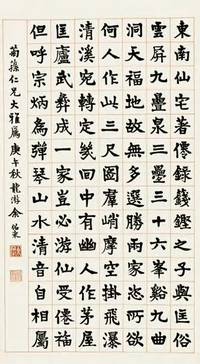 東南仙宅著僊錄籛鏗之子與匡俗
雲屏九疊泉三疊三十六峯谿九曲
洞天福地故無多選勝兩家恣所欲
何人作此三尺圖羣峭摩空掛飛瀑
清溪宛轉定幾曲中有幽人作茅屋
匡廬武彝成一家豈必游仙受僊福
但呼宗炳為彈琴山水清音自相屬
菊蓀仁兄大雅屬庚午秋龍游余紹宋